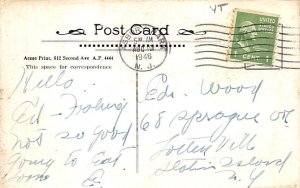 VT
Post Card
UNITED STATES
1 CENT 1
8 AM
AUG
1946
N. J.
Acme Print, 512 Second Ave A.P. 4444
This space for correspondence
Hello
Ed - Fishing
not so good
Going to Eat
soon
E.
Eds. Wood
68 Sprague
Totten Vill
Staten Island
N.Y.